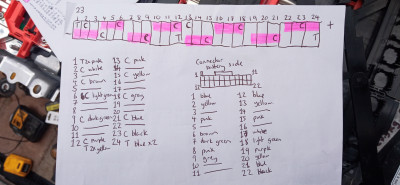 23
1 2 3 4 5 6 7 8 9 10 11 12 13 14 15 16 17 18 19 20 21 22 23 24 +
1 T 2x pink
2 C white
3
4 C brown
5
6 C light green
7
8
9 C dark green
10
11
12 C purple
T 2x yellow
13 C pink
14
15 C yellow
16
17
18 C grey
19
20
21 C blue
22
23 C black
24 T blue x2
Connector
battery side
11
22
1 blue
2 yellow
3
4 pink
5
6 brown
7 dark green
8 pink
9 grey
10
11
12 blue
13 yellow
14
15 pink
16
17 white
18 light green
19 purple
20 yellow
21 blue
22 black